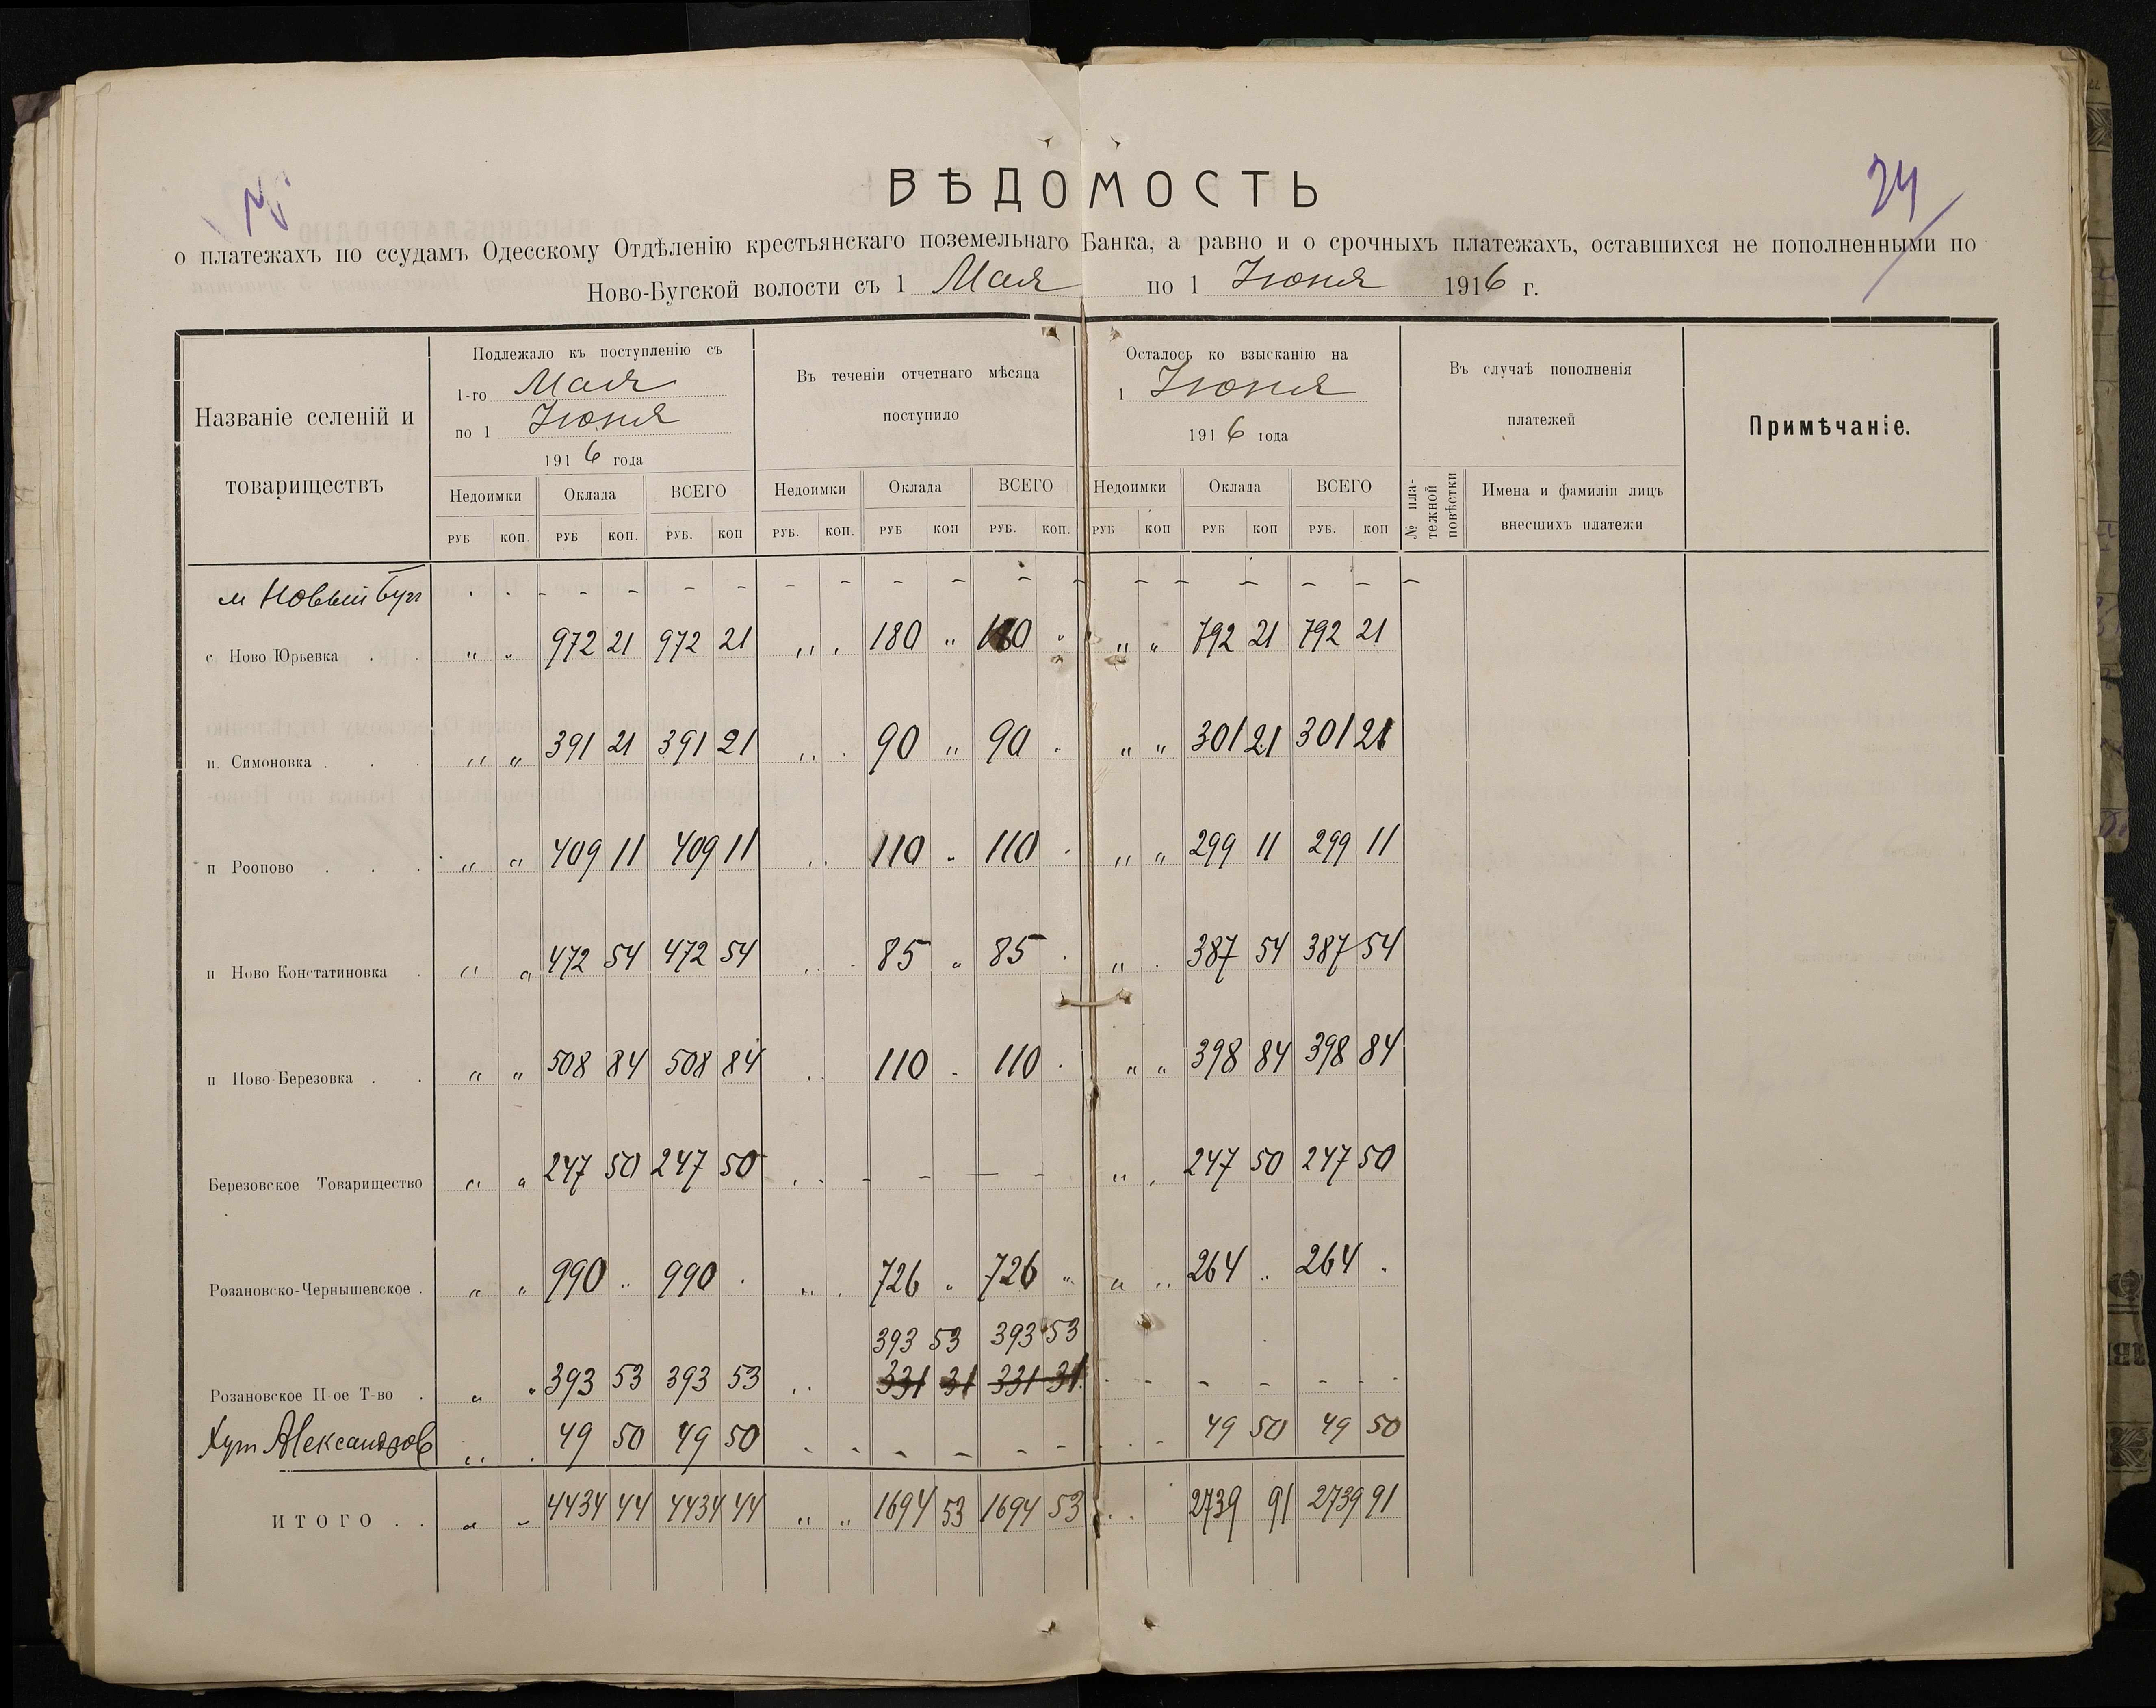 24
ВѢДОМОСТЬ
о платежахъ по ссудамъ Одесскому Отдѣленію крестьянскаго поземельнаго Банка, а равно и о срочныхъ платежахъ, оставшихся не пополненными по
Ново-Бугской волости съ 1 Мая по 1 Июня 1916 г.
Названіе селеній и товариществъ
Подлежало къ поступленію съ
1-го Мая
по 1 Июня
1916 года
Въ теченіи отчетнаго мѣсяца
поступило
Осталось ко взысканію на
1 Июня
1916 года
Въ случаѣ пополненія
платежей
Примѣчаніе.
Недоимки Оклада ВСЕГО Недоимки Оклада ВСЕГО Недоимки Оклада ВСЕГО
№ пла-
тежной
повѣстки
Имена и фамиліи лицъ
внесшихъ платежи
РУБ КОП. РУБ КОП. РУБ. КОП РУБ. КОП. РУБ КОП РУБ. КОП. РУБ КОП РУБ КОП РУБ. КОП
м Новый Буг . . - - - - - - - - - - - - - - - - - -
с Ново Юрьевка . . „ „ 972 21 972 21 „ . 180 „ 180 „ „ „ 792 21 792 21
п. Симоновка . . . „ „ 391 21 391 21 „ . 90 „ 90 . „ „ 301 21 301 21
п Роопово . . . „ „ 409 11 409 11 . . 110 „ 110 . „ „ 299 11 299 11
п Ново Констатиновка . „ „ 472 54 472 54 . . 85 „ 85 . „ . 387 54 387 54
п Ново-Березовка . . „ „ 508 84 508 84 . . 110 . 110 . „ „ 398 84 398 84
Березовское Товарищество „ „ 247 50 247 50 . . - - - - „ . 247 50 247 50
Розановско-Чернышевское . „ „ 990 „ 990 . „ . 726 „ 726 „ „ „ 264 „ 264 .
393 53 393 53
Розановское II ое Т-во . „ „ 393 53 393 53 . . 331 31 331 31 . - - - - -
Хут Александров „ . 49 50 49 50 - - - - - - . - 49 50 49 50
ИТОГО . . „ „ 4434 44 4434 44 „ „ 1694 53 1694 53 . . 2739 91 2739 91